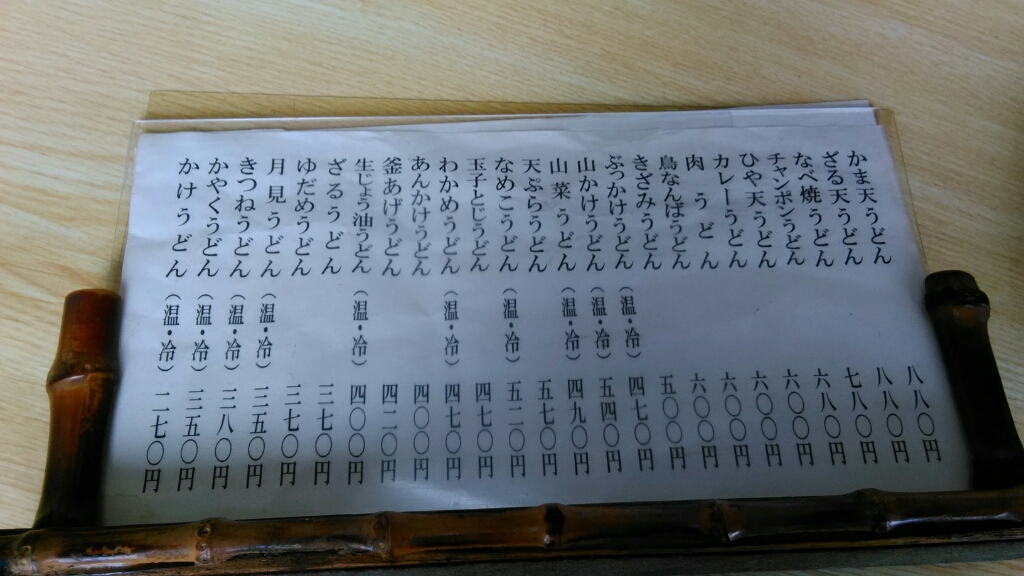 かま天うどん 八八〇円
ざる天うどん 八八〇円
なべ焼うどん 七八〇円
チャンポンうどん 六八〇円
ひや天うどん 六〇〇円
カレーうどん 六〇〇円
肉うどん 六〇〇円
鳥なんばうどん 六〇〇円
きざみうどん 五〇〇円
ぶっかけうどん（温・冷） 四七〇円
山かけうどん（温・冷） 五四〇円
山菜うどん（温・冷） 四九〇円
天ぷらうどん 五七〇円
なめこうどん（温・冷） 五二〇円
玉子とじうどん 四七〇円
わかめうどん（温・冷） 四七〇円
あんかけうどん 四〇〇円
釜あげうどん 四二〇円
生じょう油うどん（温・冷） 四〇〇円
ざるうどん 三七〇円
ゆだめうどん 三七〇円
月見うどん（温・冷） 三五〇円
きつねうどん（温・冷） 三八〇円
かやくうどん（温・冷） 三五〇円
かけうどん（温・冷） 二七〇円